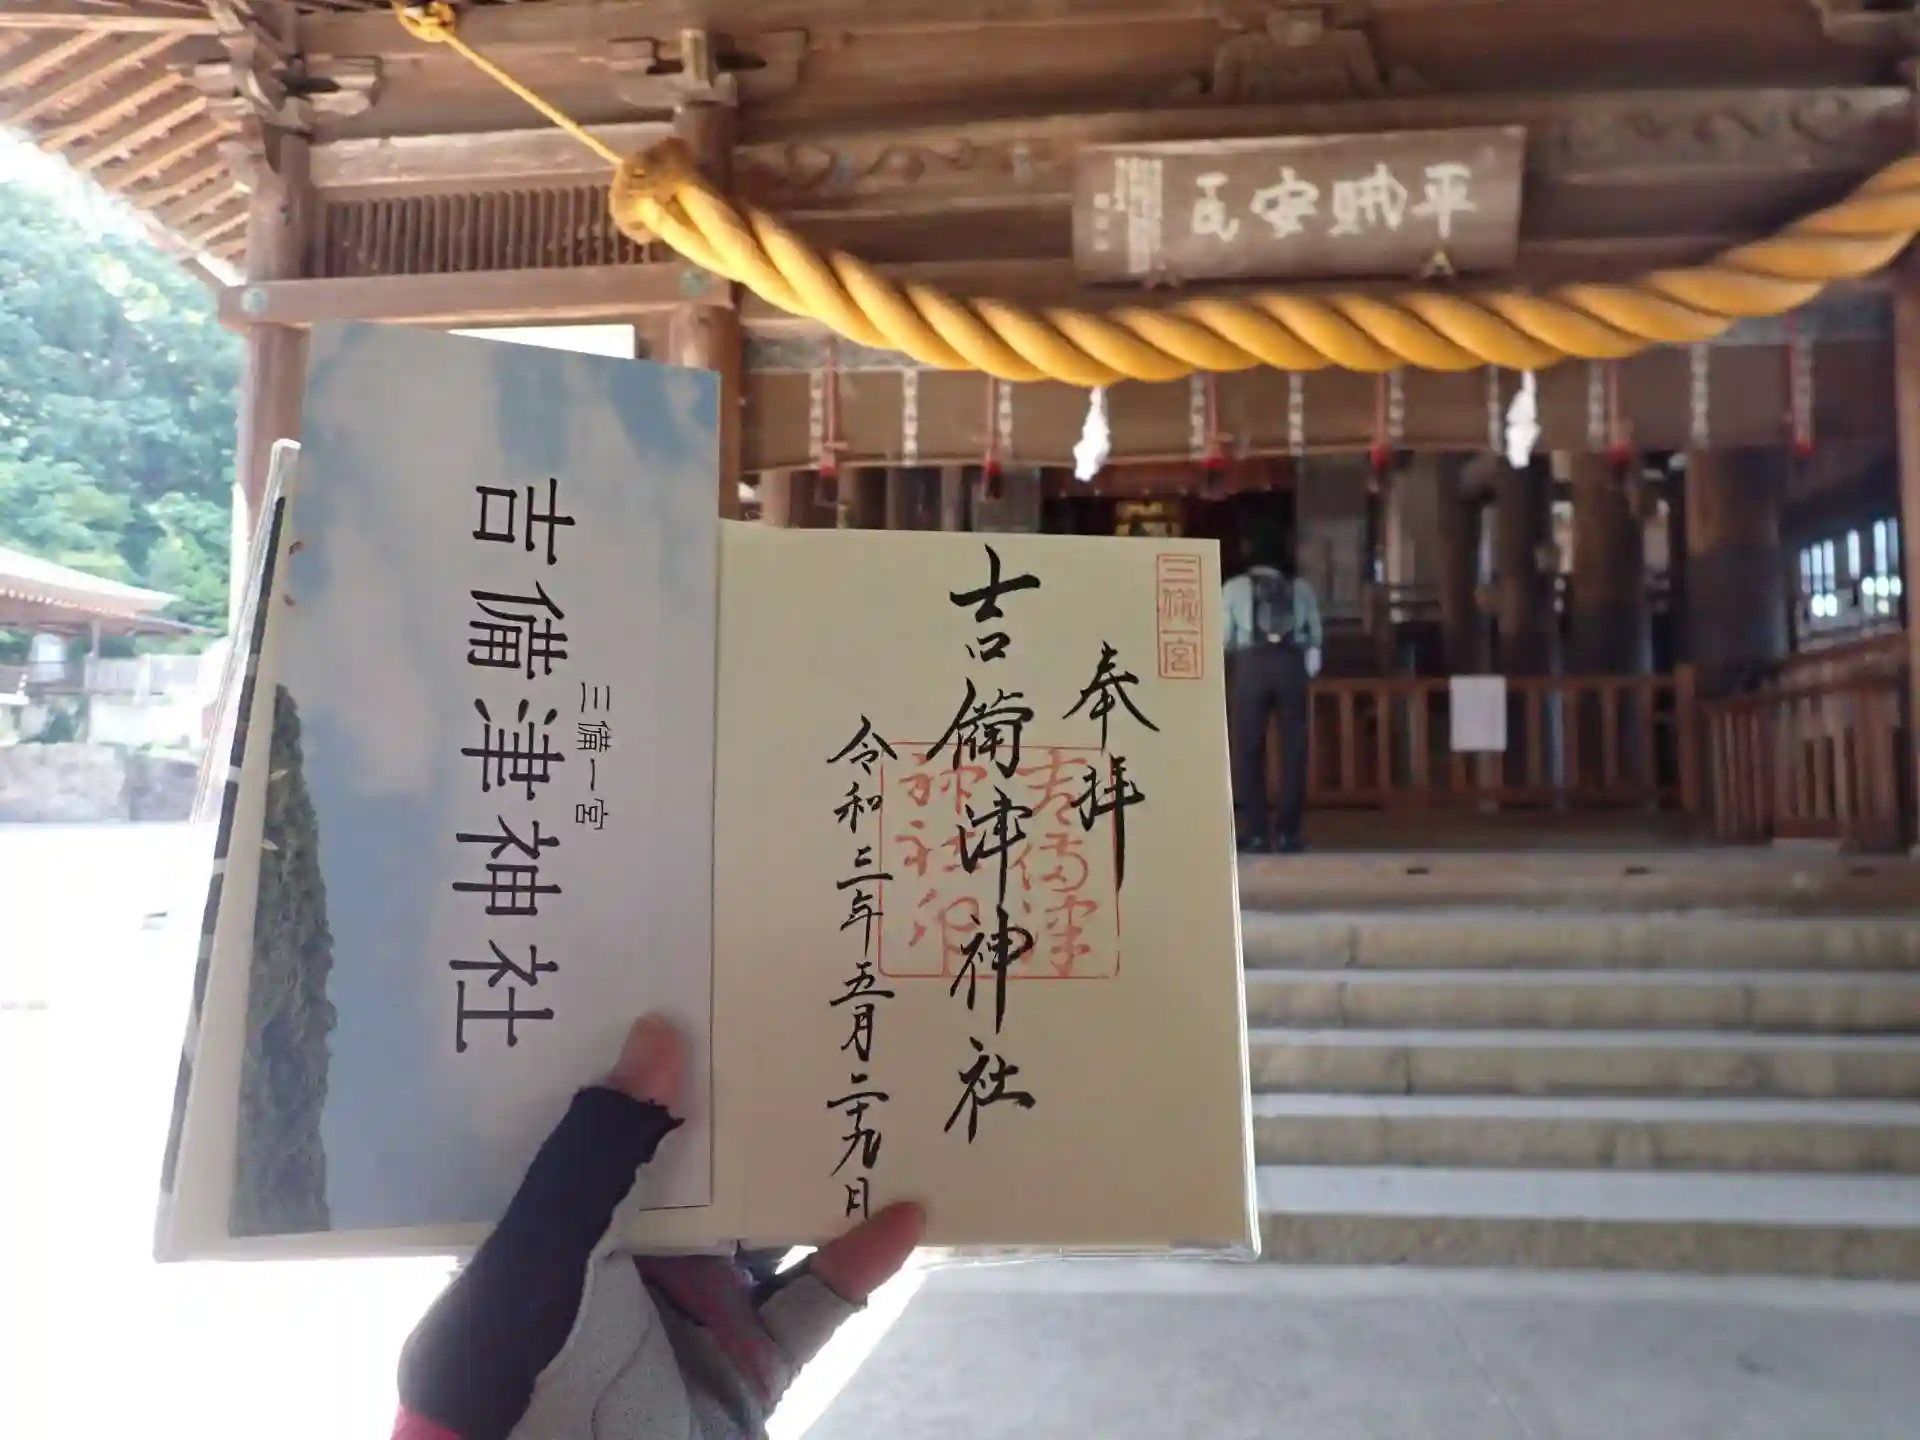 平賊安民
三備一宮
奉拝
吉備津神社
吉備津
神社印
令和三年五月二十九日
三備一宮
吉備津神社